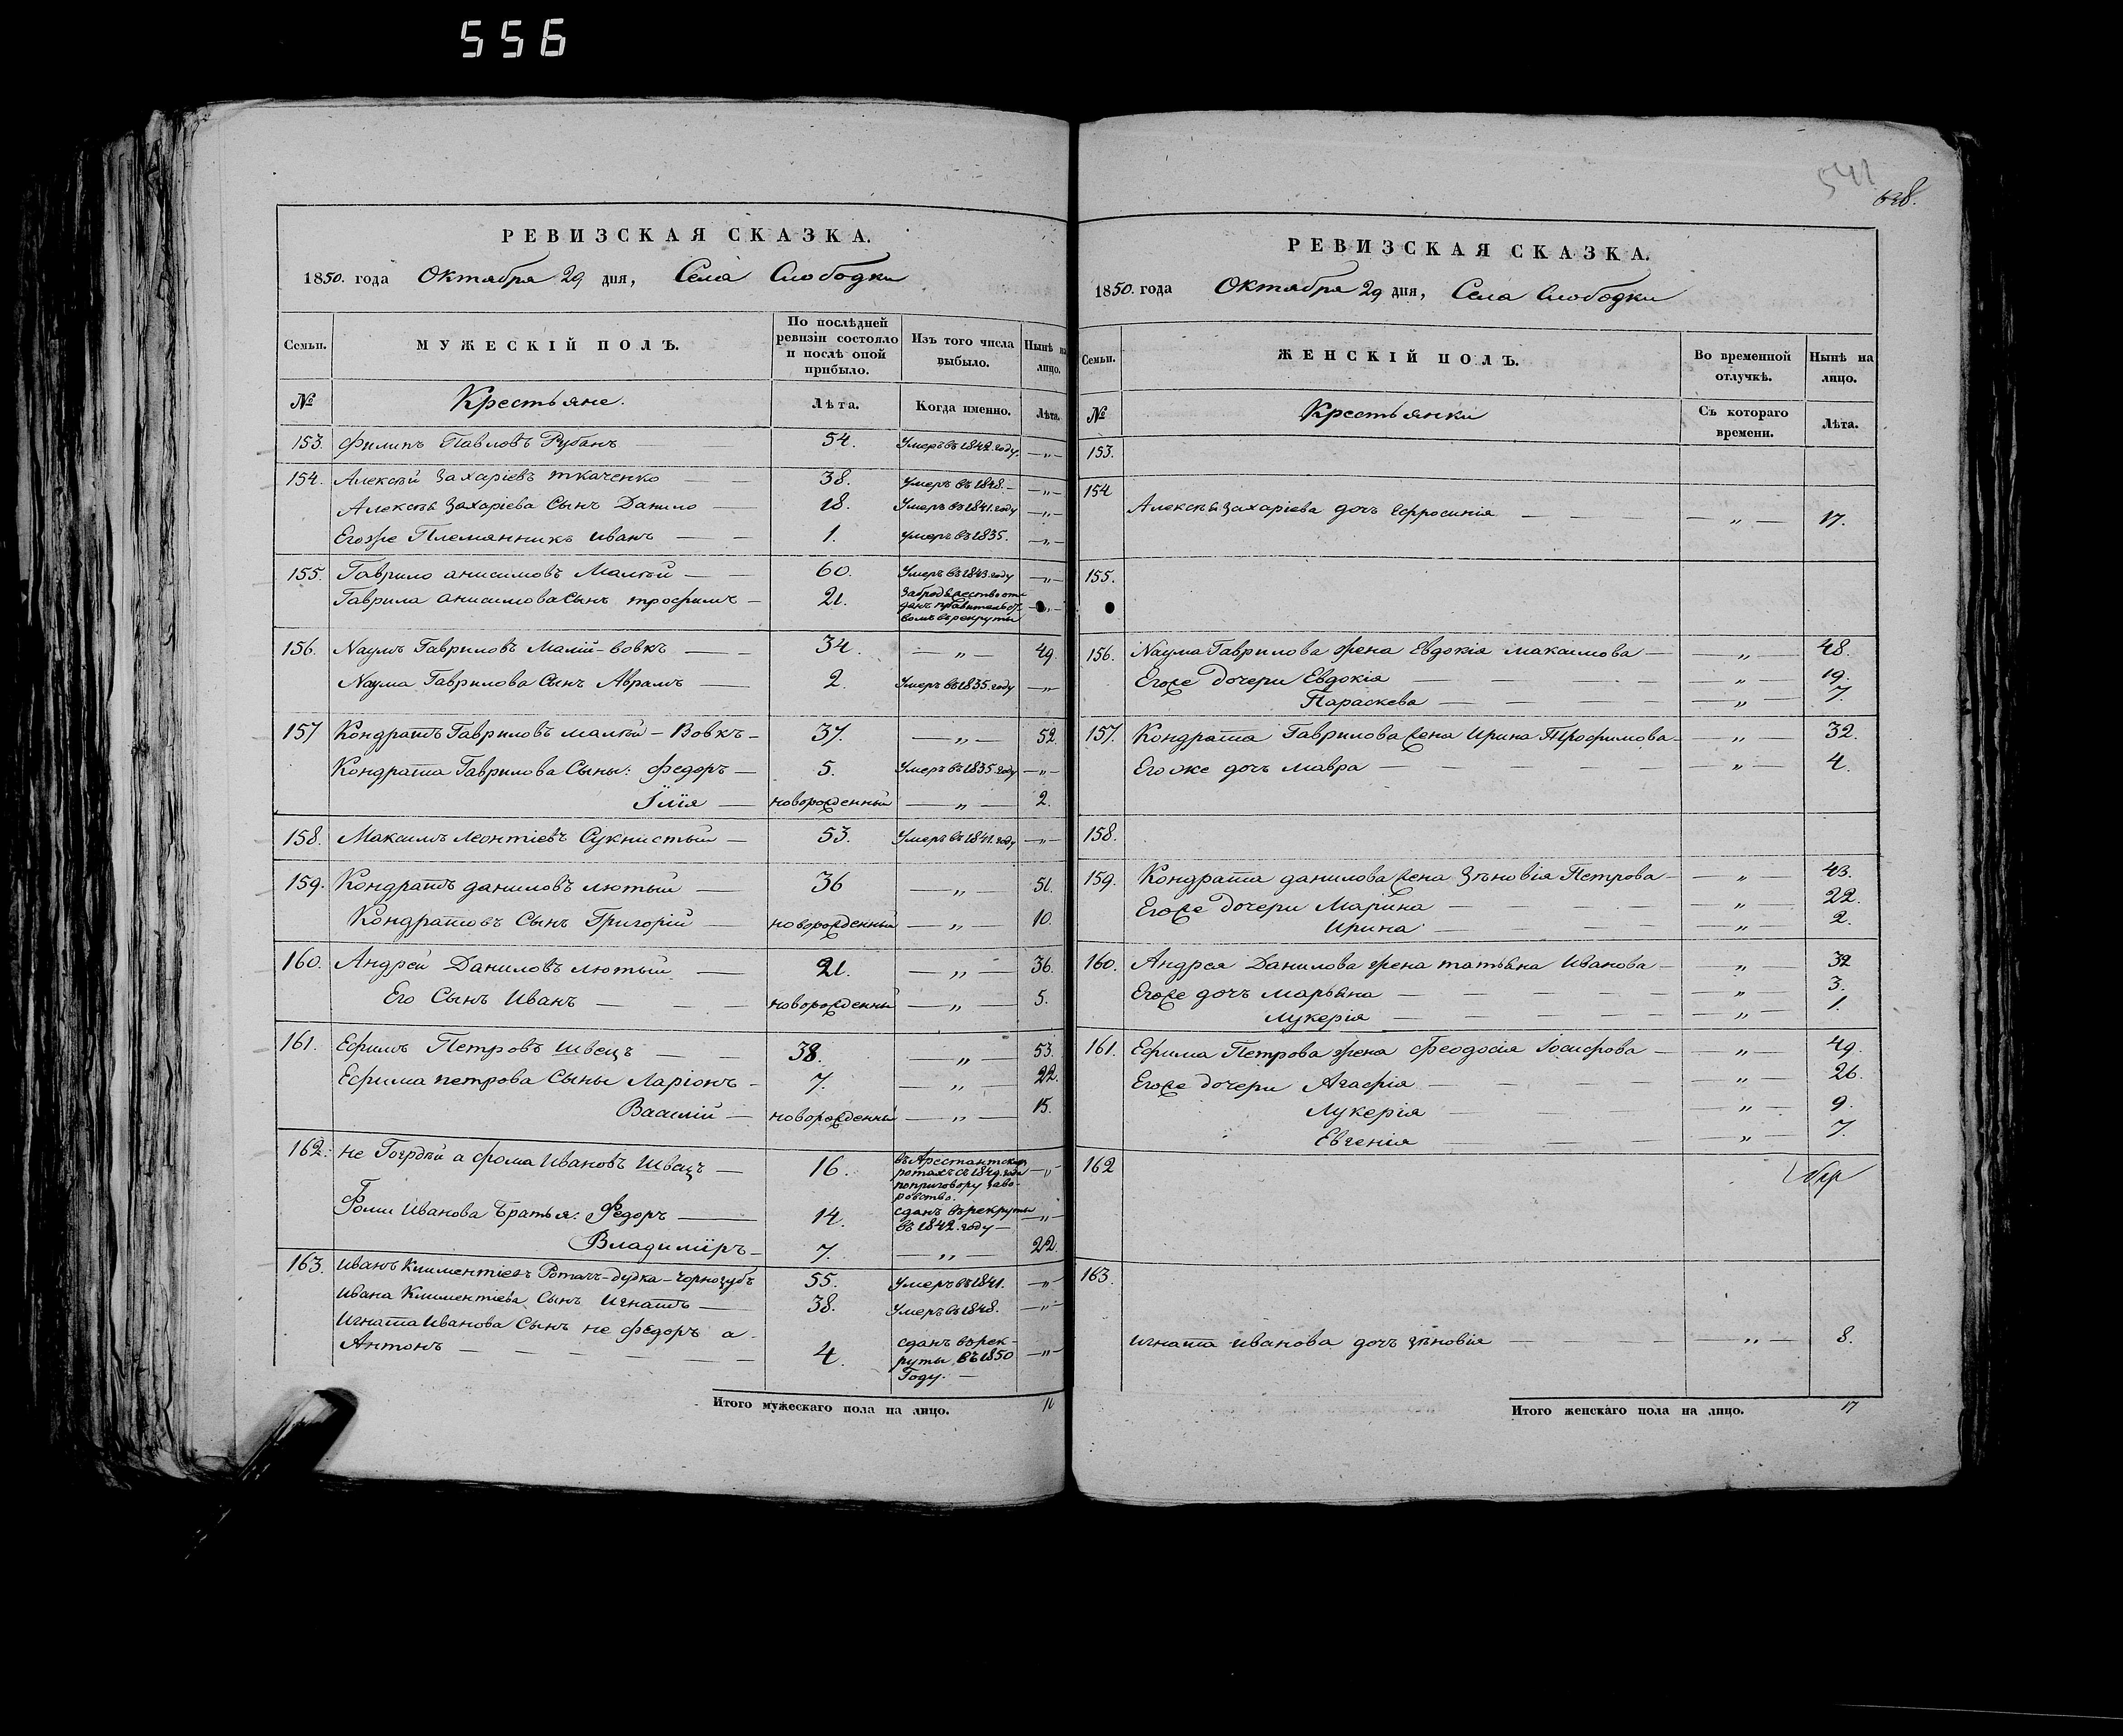 556
РЕВИЗСКАЯ СКАЗКА.
1850. года Октября 29 дня, Села Слободки
Семьи.
МУЖЕСКІЙ ПОЛЪ.
По послѣдней ревизіи состояло и послѣ оной прибыло.
Изъ того числа выбыло.
Нынѣ на лицо.
№ Крестьяне. Лѣта. Когда именно. Лѣта.
153. Филипъ Павловъ Рубанъ — 54. Умеръ въ 1842. году. — „ —
154. Алексѣй Захаріевъ Ткаченко — 38. Умеръ въ 1848. — — „ —
Алексѣя Захаріева Сынъ Данило — 18. Умеръ въ 1841. году — „ —
Егоже Племянникъ Иванъ — — 1. умеръ въ 1835. — „ —
155. Гаврило анисимовъ Малый — — 60. Умеръ въ 1843. году — „ —
Гаврила анисимова Сынъ трофимъ — 21.
данъ правительст
вомъ въ рекруты — „ —
156. Наумъ Гавриловъ Малій-вовкъ — — 34. — „ — 49.
Наума Гаврилова Сынъ Абрамъ — 2. Умеръ въ 1835. году — „ —
157 Кондратъ Гавриловъ малый – Вовкъ – 37. — „ — 52.
Кондрата Гаврилова Сыны: Федоръ — 5. Умеръ въ 1835. году — „ —
Илія — новорожденный — „ — 2.
158. Максимъ Леонтіевъ Сукнистый — 53. Умеръ въ 1841. году — „ —
159. Кондратъ даниловъ лютый — 36 — „ — 51.
Кондратовъ Сынъ Григорій — новорожденный — „ — 10.
160. Андрей Даниловъ лютый — 21. — „ — 36.
Его Сынъ Иванъ — — — новорожденный — „ — 5.
161. Ефимъ Петровъ Швецъ — — 38. — „ — 53.
Ефима петрова Сыны Ларіонъ – 7. — „ — 22.
Василій — новорожденный — „ — 15.
162. не Гордѣй а Фома Ивановъ Швецъ — 16. въ Арестантскихъ
ротахъ съ 1849. года
поприговору заво-
ровство. — „
Фомы Иванова Братья: Федоръ — 14. сданъ въ рекруты
въ 1842. году — — „ —
Владиміръ – 7. — „ — 22.
163. Иванъ Климентіевъ Ротачъ-дудка-чорнозубъ 55. Умеръ въ 1841. — „
Ивана Климентіева Сынъ Игнатъ — 38. Умеръ въ 1848. — „ —
Игната Иванова Сынъ не федоръ а
Антонъ — — — — 4. сданъ въ рек-
руты въ 1850
Году. — — „ —
Итого мужескаго пола на лицо. 10
541
528.
РЕВИЗСКАЯ СКАЗКА.
1850. года Октября 29 дня, Села Слободки
Семьи.
ЖЕНСКІЙ ПОЛЪ.
Во временной отлучкѣ.
Нынѣ на лицо.
№ Крестьянки Съ котораго времени. Лѣта.
153.
154 Алексѣя Захаріева дочь Ефросинія — — — — „ — 17.
155.
156. Наума Гаврилова жена Евдокія максимова — — „ — 48.
Егоже дочери Евдокія — — — — „ — 19.
Параскева — — — — „ — 7.
157. Кондрата Гаврилова жена Ирина Трофимова — — „ — 32.
Егоже дочь мавра — — — — „ — 4.
158.
159. Кондрата данилова жена Зѣновія Петрова — — „ — 43.
Егоже дочери Марина — — — — „ — 22.
Ирина — — — — „ — 2.
160. Андрея Данилова жена татьяна Иванова — — „ — 32
Егоже дочь марьяна — — — — „ — 3.
Лукерія — — — — „ — 1.
161. Ефима Петрова жена Феодосія Іосифова — — „ — 49.
Егоже дочери Агафія — — — „ — 26.
Лукерія — — „ — 9.
Евгенія — — — — „ — 7.
162
163.
игната иванова дочь зѣновія — — — — „ — 8.
Итого женскаго пола на лицо. 17